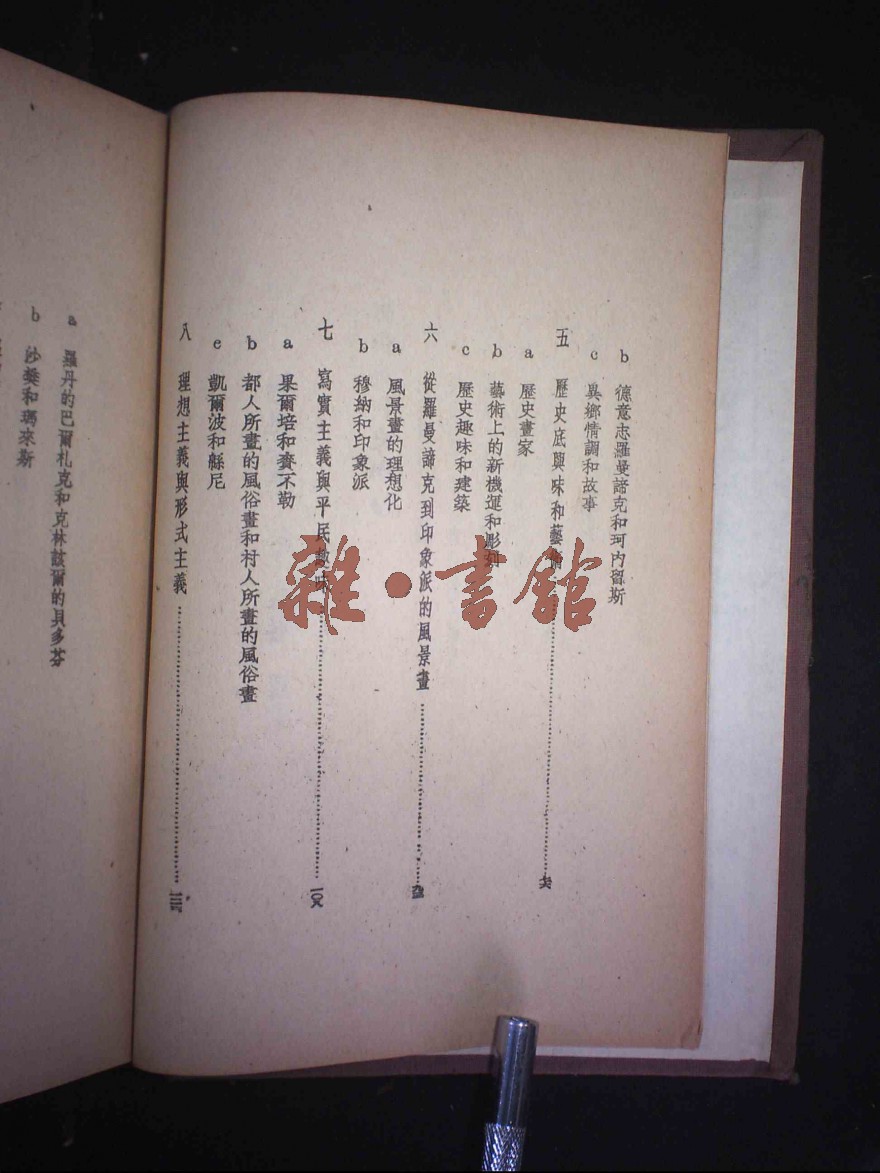 b 德意志羅曼諦克和珂內留斯
c 異鄉情調和故事
五 歷史底興味和藝術
a 歷史畫家
b 藝術上的新機運和彫刻
c 歷史趣味和建築
六 從羅曼諦克到印象派的風景畫
a 風景畫的理想化
b 穆納和印象派
七 寫實主義與平民趣味 一〇八
a 果爾培和賚不勒
b 都人所畫的風俗畫和村人所畫的風俗畫
c 凱爾波和縣尼
八 理想主義與形式主義
a 羅丹的巴爾札克和克林該爾的貝多芬
b 沙樊和瑪來斯
雜·書館